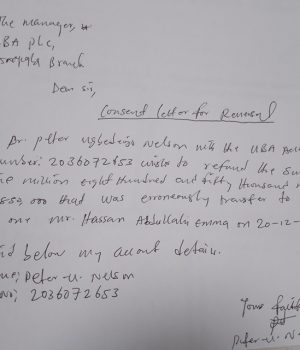 The manager,
UBA PLC,
Branch
Dear sir,
Consent Letter for Reversal
Dr. Peter Nelson with the UBA
number: 2036072653 wish to refund the su
million eight hundred and fifty thousand
000 that was erroneously transfer to
one Mr. Hassan Abdullahi Emma on 20-12-
below my account details.
Peter-U. Nelson
no; 2036072653
Yours
Peter-U. N